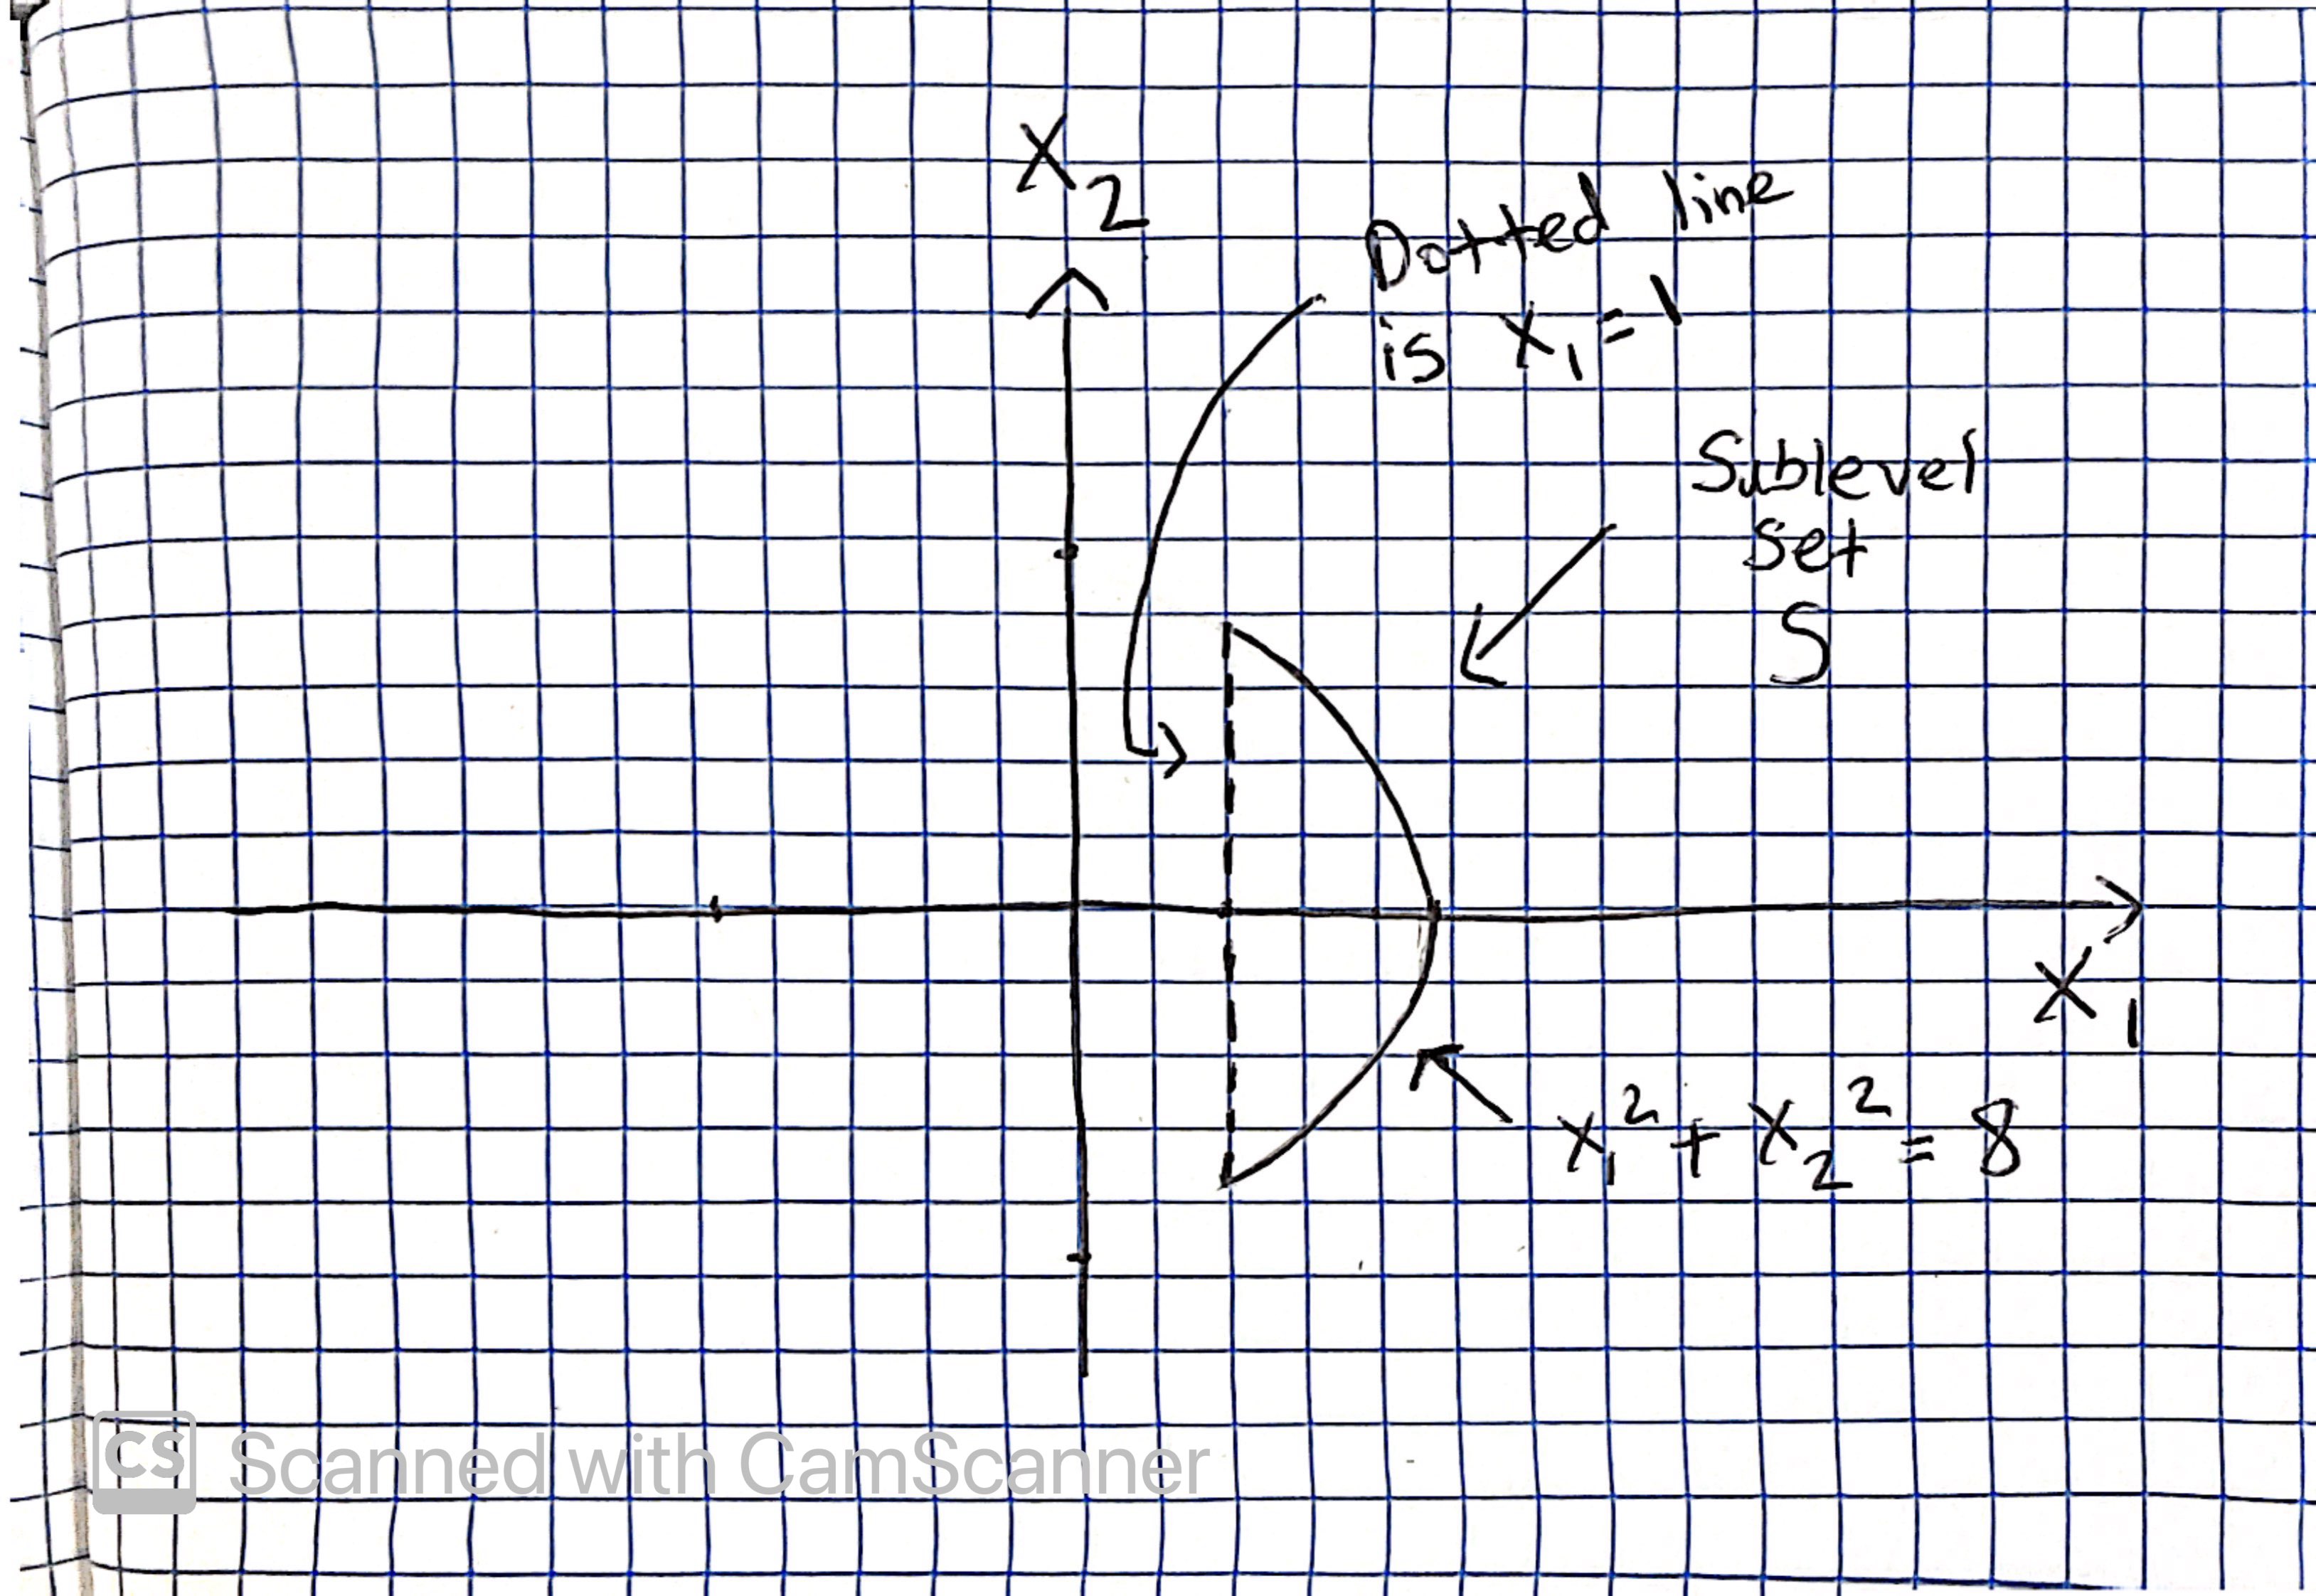 X₂
Dotted line
is X₁ = 1
Sublevel
Set
S
X₁
X₁² + X₂² = 8
CS Scanned with CamScanner